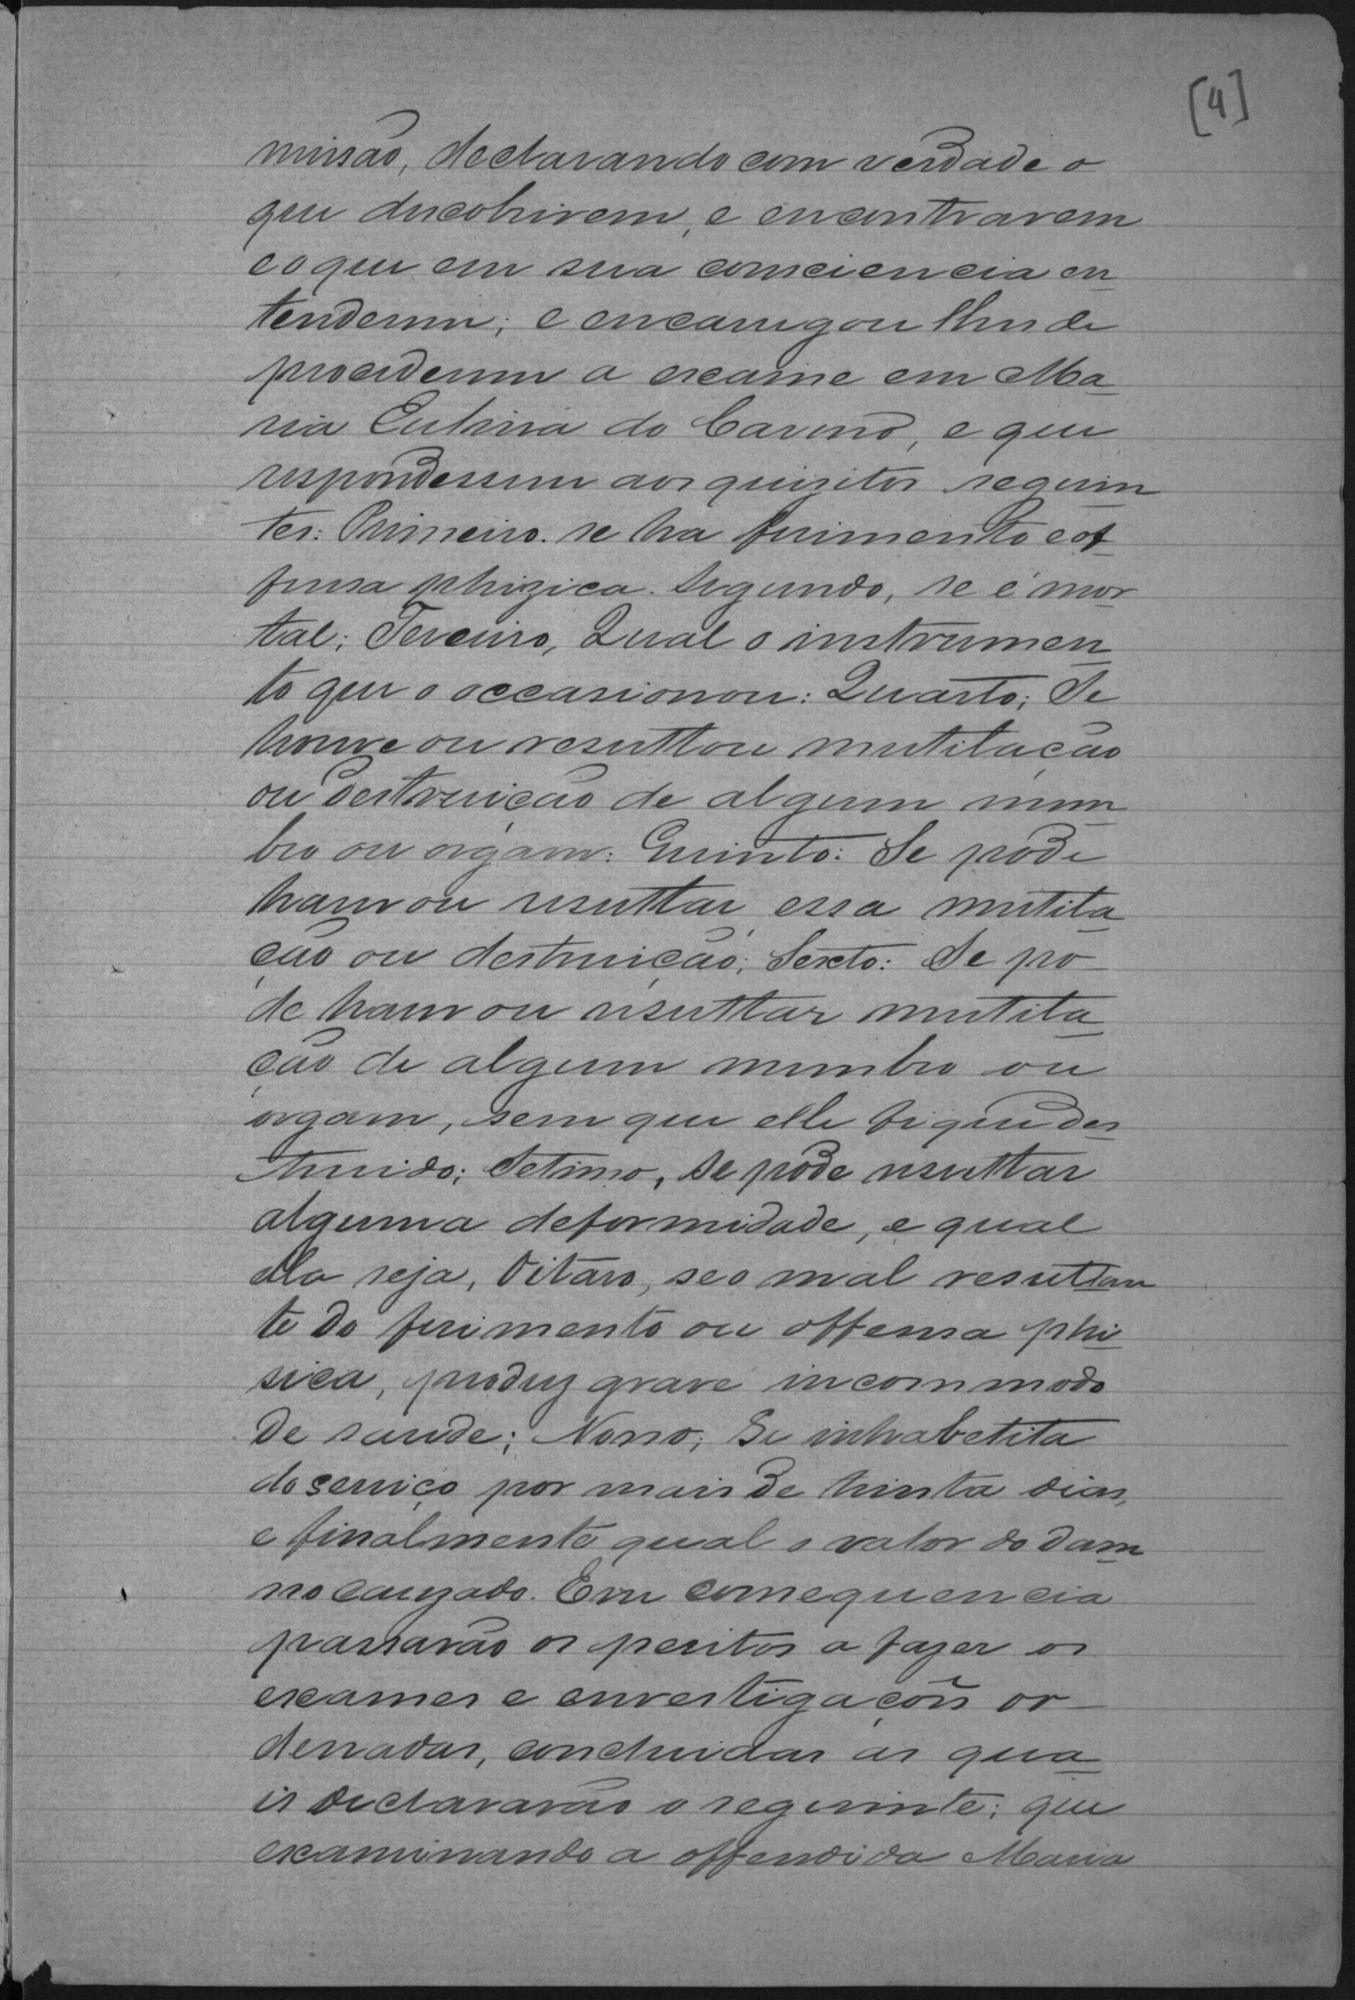 [4]
missão, declarando com verdade o
que descobrirem, e encontrarem
e o que em sua consciencia en
tenderem; e encarregou lhes de
procederem a exame em Ma
ria Eutiria do Carmo, e que
respondessem aos quisitos seguin
tes: Primeiro. se ha ferimento e of
fensa phizica. Segundo, se é mor
tal; Terceiro, Qual o instrumen
to que o occasionou: Quarto; Se
houve ou resultou mutilação
ou destruição de algum mem
bro ou orgam: Quinto: Se pode
haver ou resultar essa mutila
ção ou destruição; Sexto: Se po
de haver ou resultar mutila
ção de algum membro ou
orgam, sem que elle fique des
truido; Setimo, se pode resultar
alguma deformidade, e qual
ella seja, Oitavo, se o mal resultan
te do ferimento ou offensa phi
sica, produz grave incommodo
de saude; Nono; Se inhabelita
do serviço por mais de trinta dias,
e finalmente qual o valor do dam
no cauzado. Em consequencia
passarão os peritos a fazer os
exames e envestigações or
denadas, concluidas as qua
is declararão o seguinte; que
examinando a offendida Maria